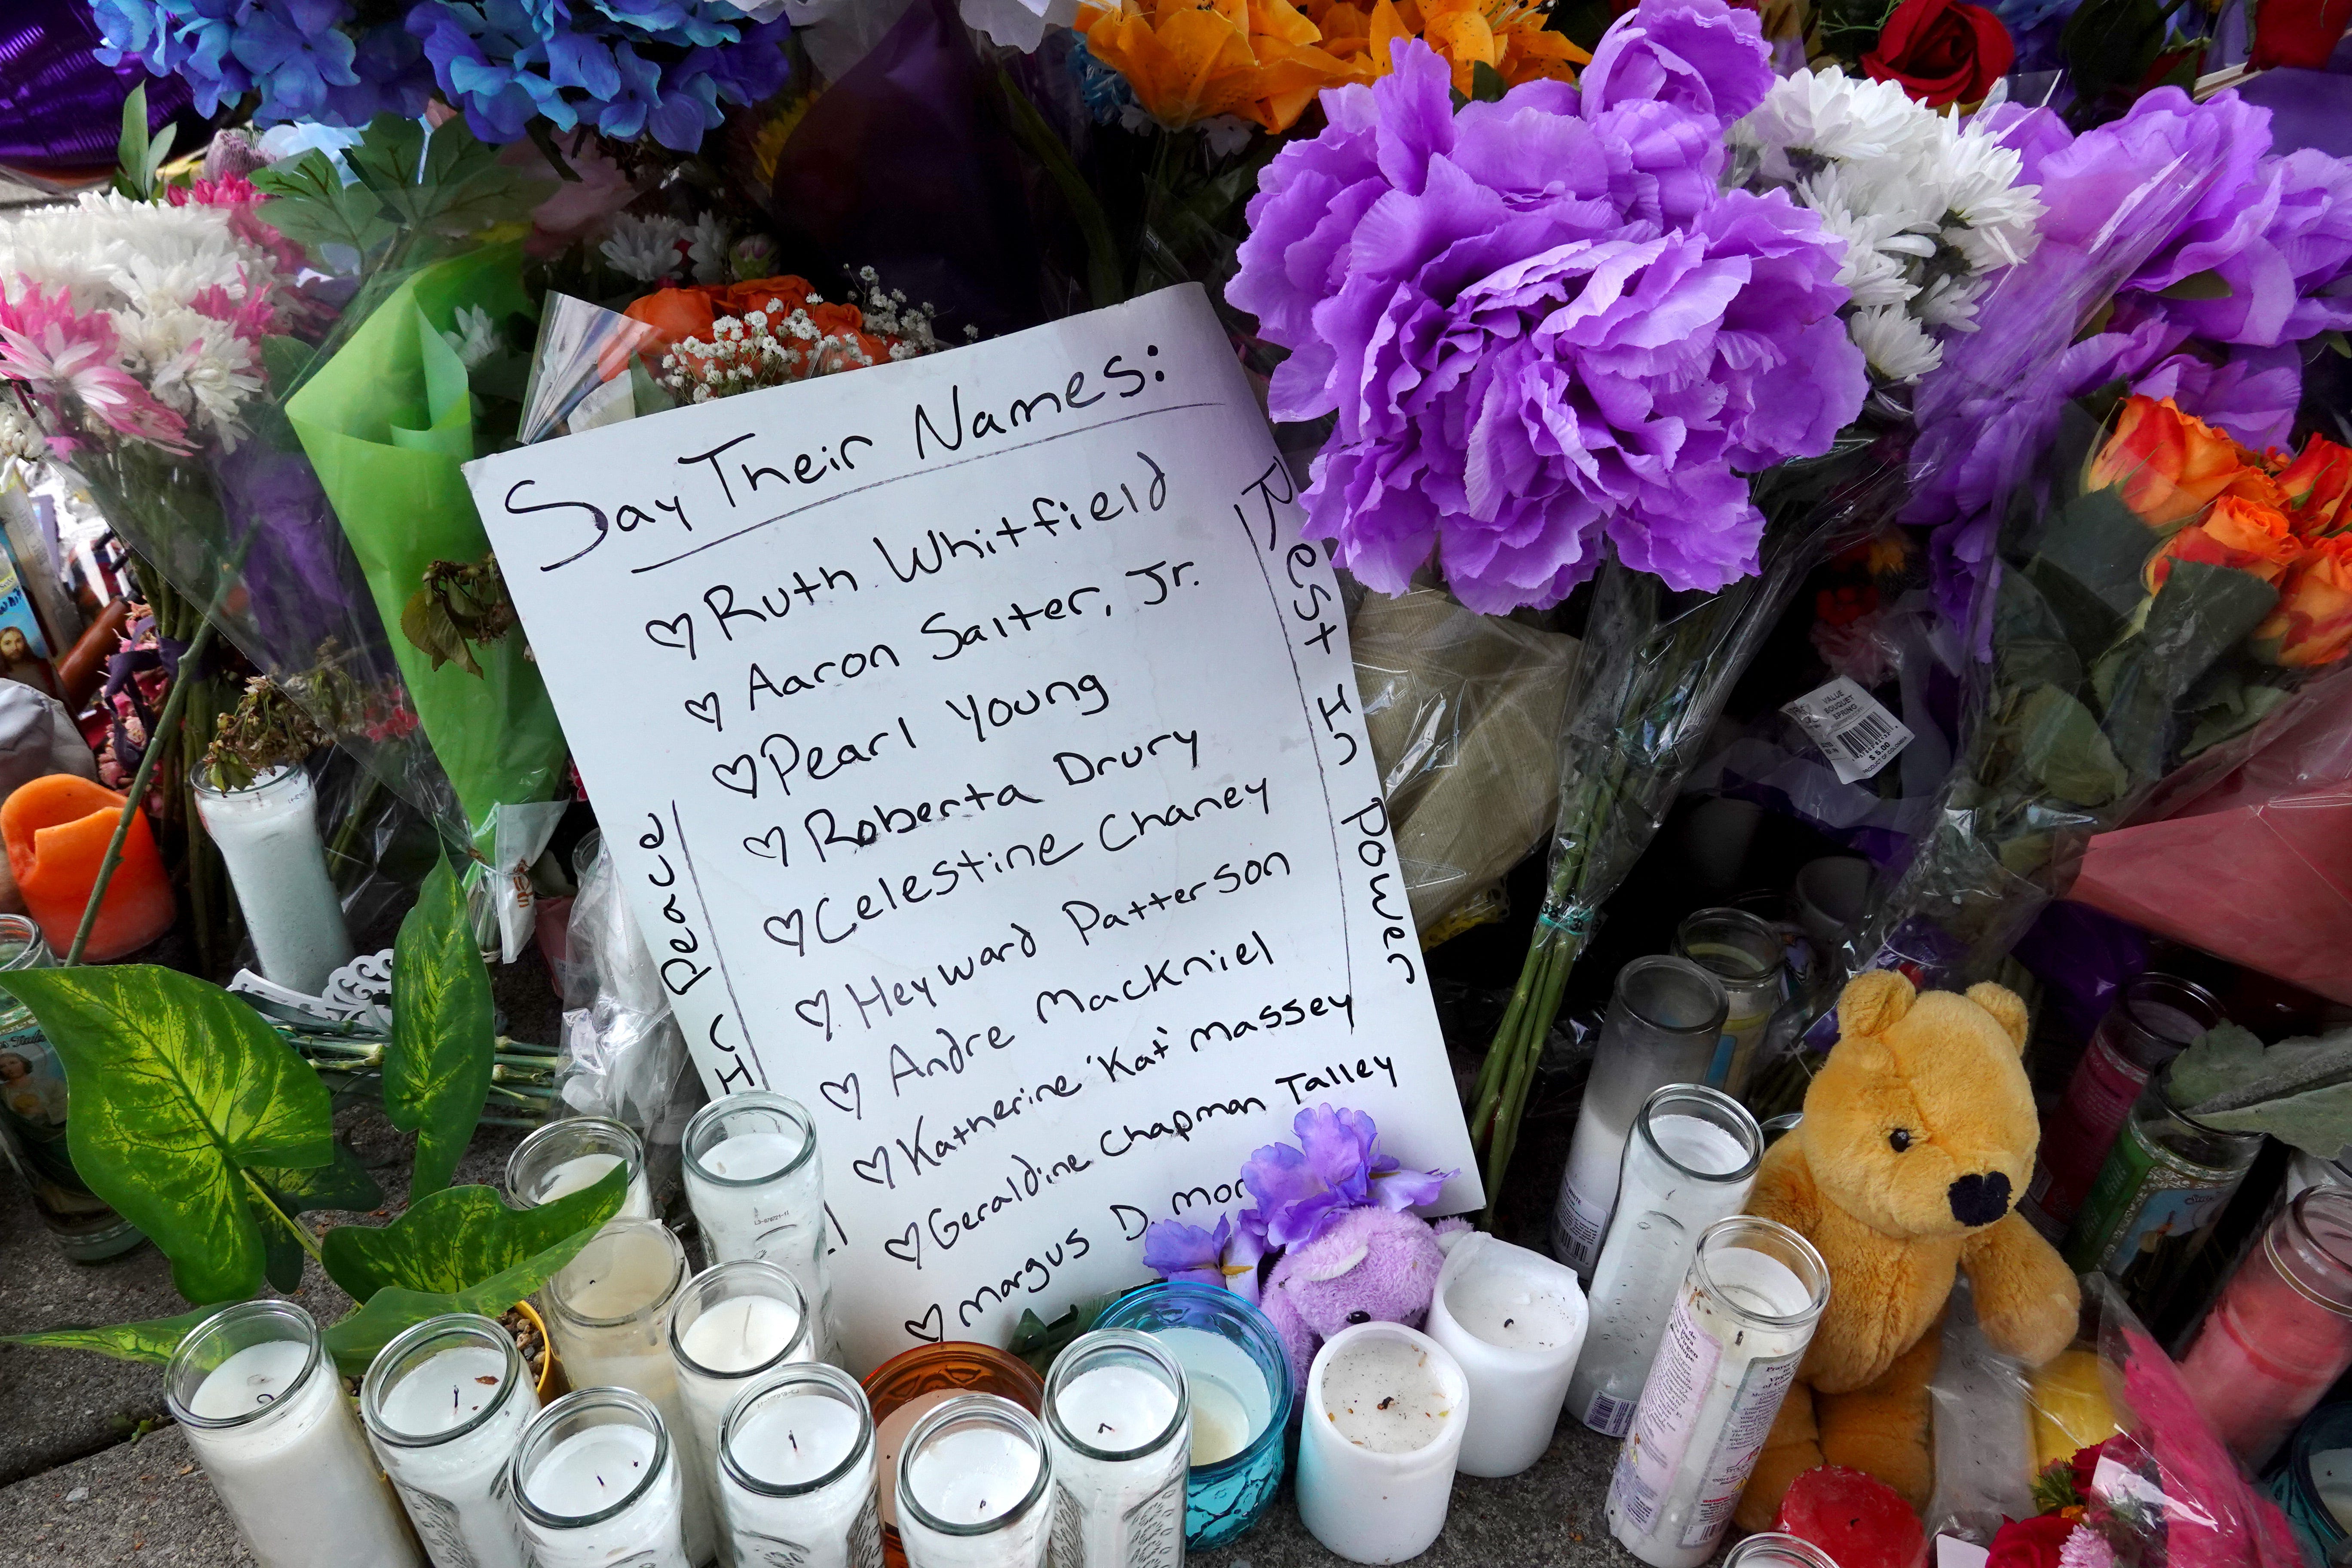 Say Their Names:
♡ Ruth Whitfield
♡ Aaron Salter, Jr.
♡ Pearl Young
♡ Roberta Drury
♡ Celestine Chaney
♡ Heyward Patterson
♡ Andre Mackniel
♡ Katherine 'Kat' Massey
♡ Geraldine Chapman Talley
♡ Margus D. Mor
Rest In Power
In Peace
VALUE
BOUQUET
SPRING
$ 5.00
PRODUCT OF COLOMBIA